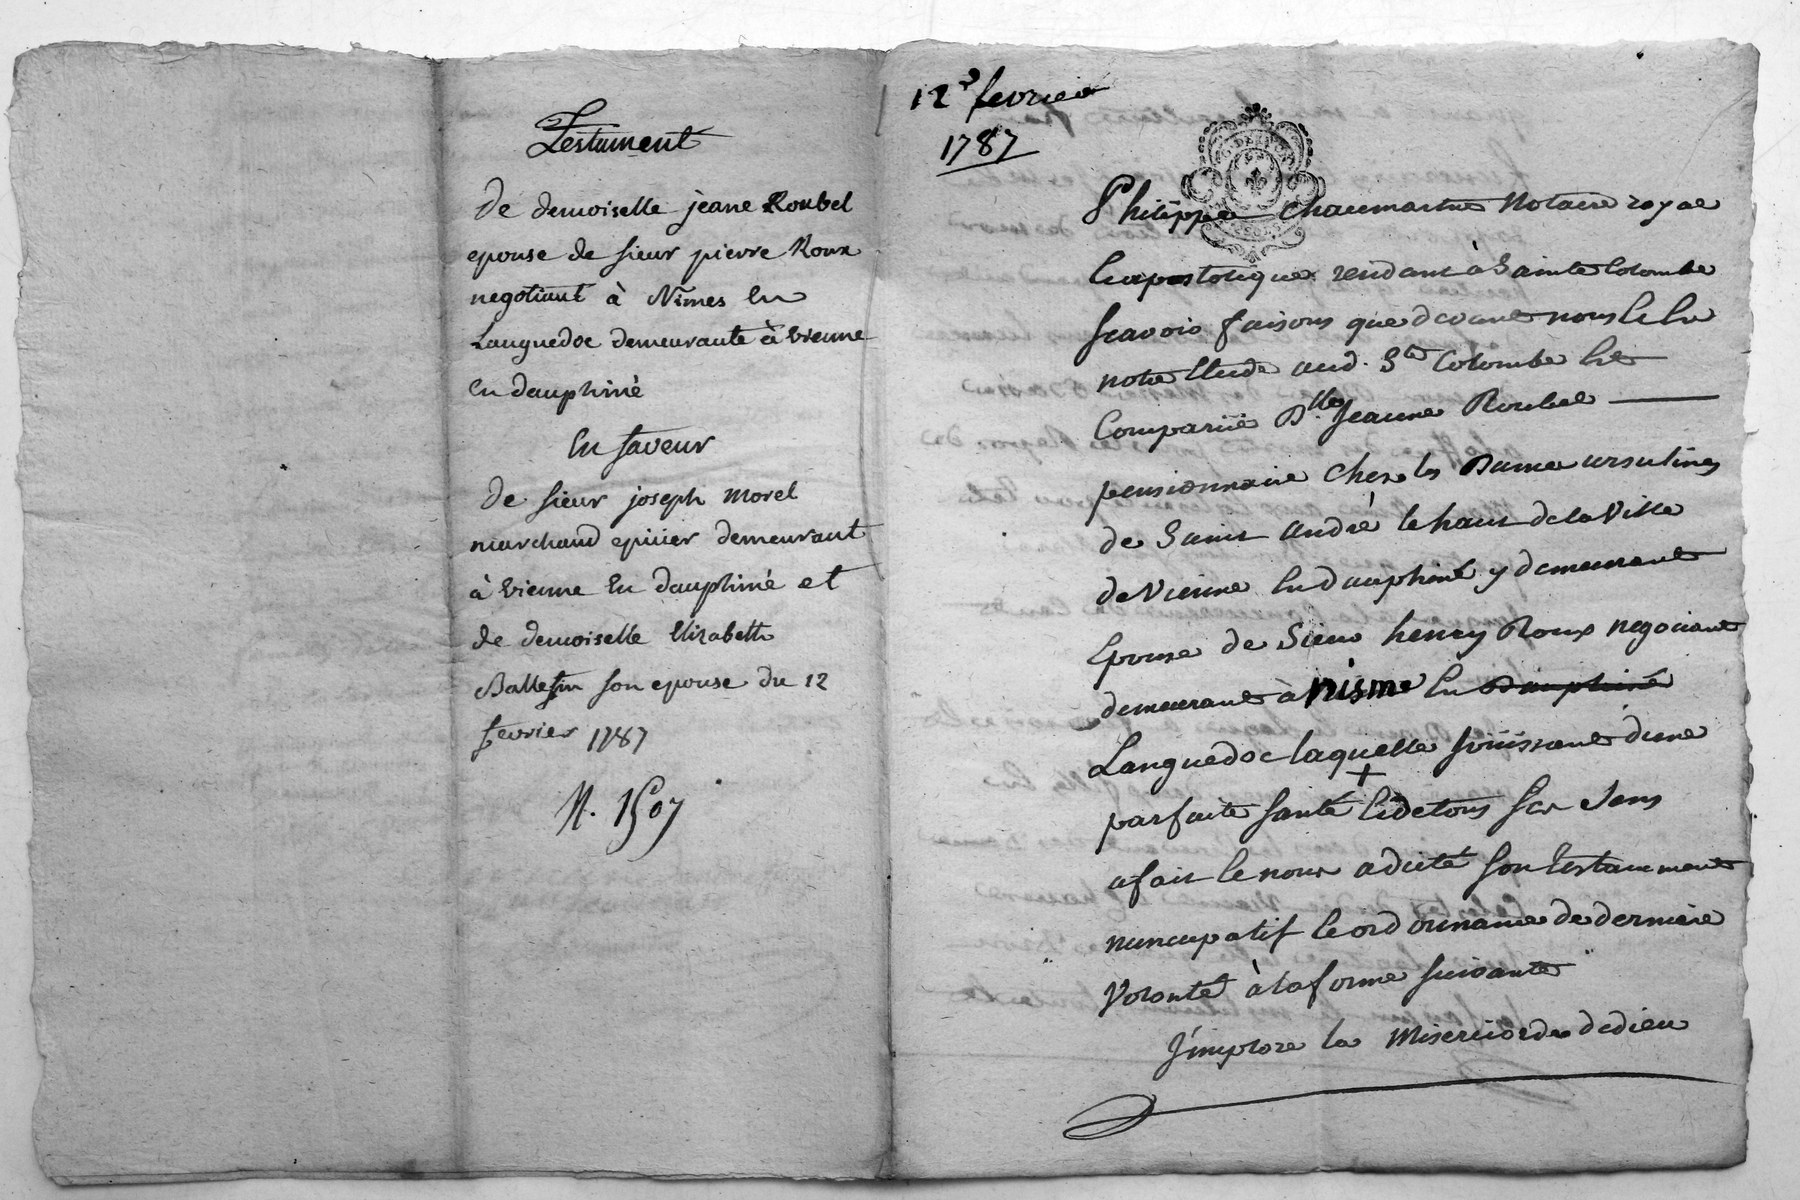 Testament
De demoiselle jeane Roubel
epouse de sieur pierre Roux
negotiant à Nimes En
Languedoc demeurante à vienne
En dauphiné
En faveur
De sieur joseph morel
marchand epicier demeurant
à vienne En dauphiné et
de demoiselle Elizabeth
Ballefin son epouse du 12
fevrier 1787
N. 1507
12e fevrier
1787
Philippe Chaumartin Notaire royal
Eapostolique residant à Sainte Colombe
scavoir faisons que devant nous Et En
notre Etude aud. Ste Colombe Est
Comparüe Dlle Jeanne Roubel
pensionnaire chez les Dames ursulines
de Saint André le haut de la Ville
de Vienne En dauphiné y demeurant
Epouse de Sieur henry Roux negociant
demeurant à nisme En Dauphiné
Languedoc laquelle joüissant d'une
parfaite santé Et de tous ses sens
a fait Et nous a dicté son testamment
nuncupatif Et ordonnance de derniere
Volonté à la forme suivante
J'implore la Misericorde de dieu